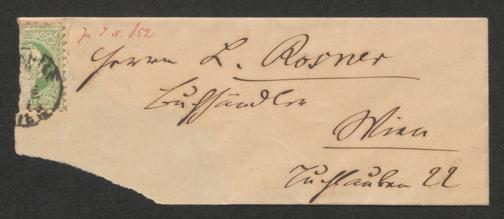 Zu I. N. 652
Herrn L. Rosner
Buchhändler
Wien
Tuchlauben 22